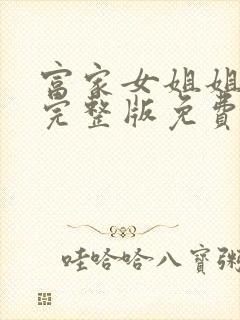 富家女姐姐
完整版免費
哇哈哈八寶粥